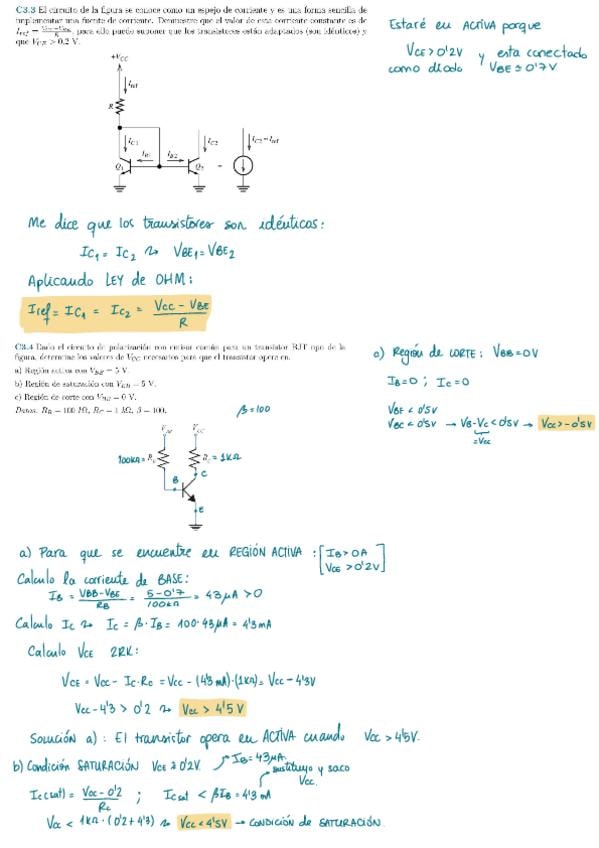 C3.3 El circuito de la figura se conoce como un espejo de corriente y es una forma sencilla de
implementar una fuente de corriente. Demuestre que el valor de esta corriente constante es de
I_ref = (V_CC − V_BE)/R, para ello puede suponer que los transistores están adaptados (son idénticos) y
que V_CE > 0.2 V.
Estaré en ACTIVA porque
VCE > 0'2V y esta conectado
como diodo VBE ≈ 0'7V
+V_CC
I_ref
R
I_C1
I_C2
I_C2=I_ref
I_B1
I_B2
Q1
Q2
=
Me dice que los transistores son idénticos:
IC1 = IC2 → VBE1 = VBE2
Aplicando LEY de OHM:
Iref = IC1 = IC2 = (VCC - VBE)/R
C3.4 Dado el circuito de polarización con emisor común para un transistor BJT npn de la
figura, determine los valores de V_CC necesarios para que el transistor opere en:
a) Región activa con V_BB = 5 V.
b) Región de saturación con V_BB = 5 V.
c) Región de corte con V_BB = 0 V.
Datos: R_B = 100 kΩ, R_C = 1 kΩ, β = 100.
β=100
c) Región de CORTE: VBB=0V
IB=0 ; IC=0
VBE < 0'5V
VBC < 0'5V → VB-VC < 0'5V → VCC > -0'5V
=VCC
V_BB
V_CC
100KΩ = R_B
R_C = 1KΩ
C
B
E
a) Para que se encuentre en REGIÓN ACTIVA : [IB > 0A
VCE > 0'2V]
Calculo la corriente de BASE:
IB = (VBB-VBE)/RB = (5-0'7)/100KΩ = 43µA > 0
Calculo IC → IC = β·IB = 100·43µA = 4'3mA
Calculo VCE 2RK:
VCE = VCC - IC·RC = VCC - (4'3 mA)·(1KΩ) = VCC - 4'3V
VCC-4'3 > 0'2 → VCC > 4'5 V
SOLUCIÓN a) : El transistor opera en ACTIVA cuando VCC > 4'5V.
b) Condición SATURACIÓN VCE ≈ 0'2V
IB=43µA
sustituyo y saco
VCC
IC(sat) = (VCC-0'2)/RC ; ICsat < βIB = 4'3 mA
VCC < 1KΩ·(0'2+4'3) → VCC < 4'5V → CONDICIÓN de SATURACIÓN.